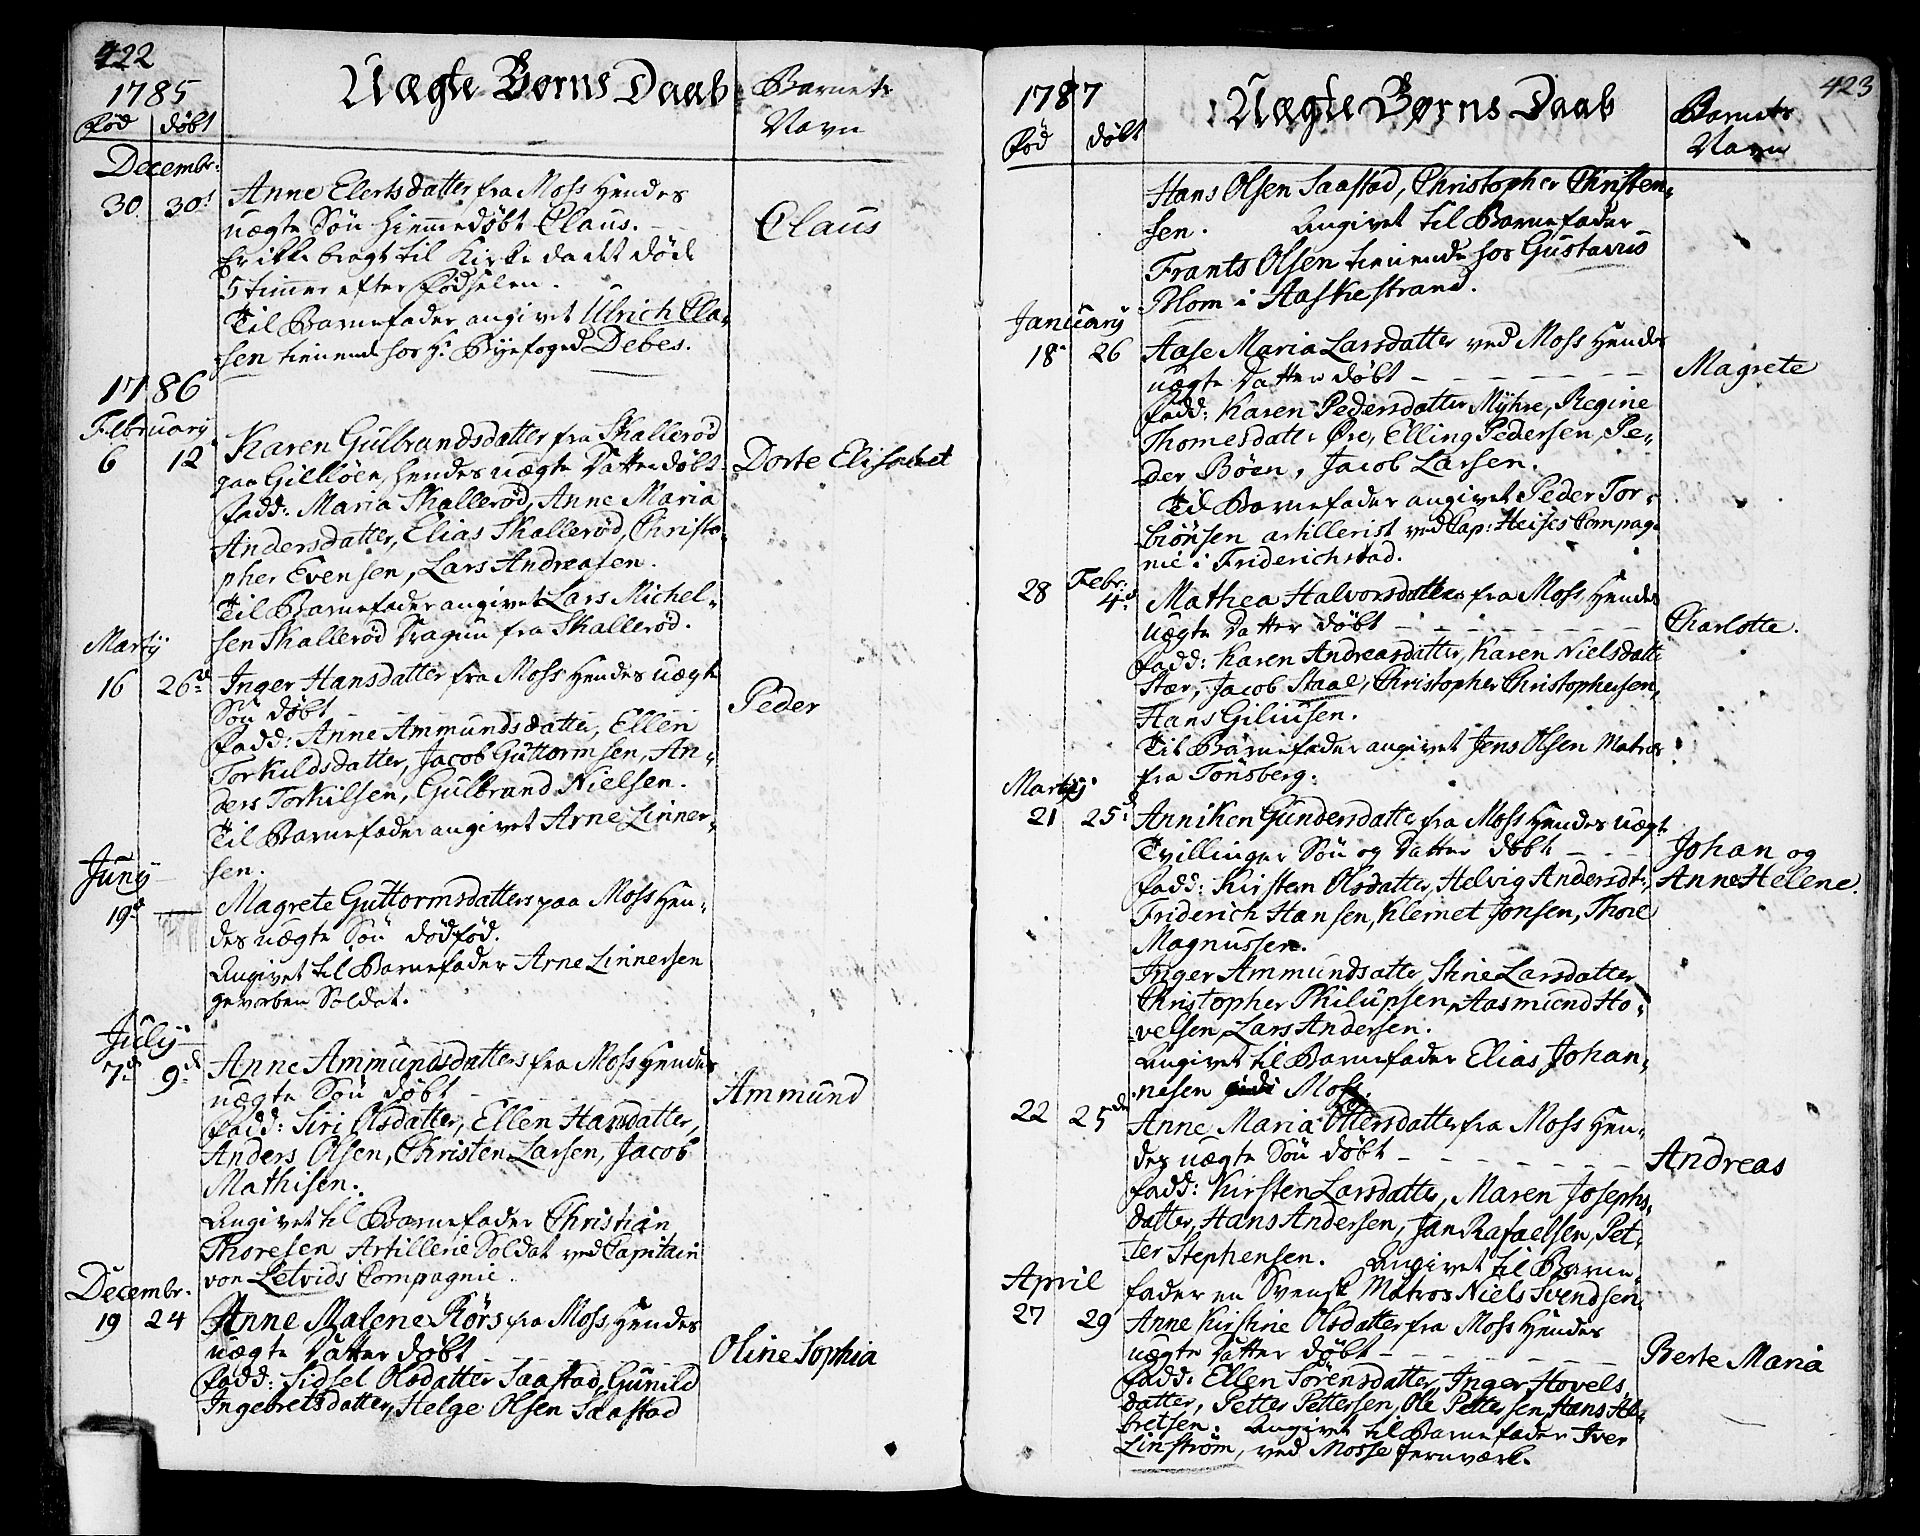 422
1785
Uægte Børns Daab
Barnets
Navn
Fød døbt
Decembr:
30 30t Anne Elertsdatter fra Moss Hendes
uægte Søn hiemmedøbt Claus. Claus
Er ikke bragt til Kirke da det døde
5 timer efter Fødselen.
Til Barnefader angivet Ulrich Cla-
sen tienende hos Hr Byefoged Debes.
1786
February
6 12 Karen Gulbrandsdatter fra Skallerød
paa Gilløen, Hendes uægte Datter døbt Dorte Elisabet
Fadd: Maria Skallerød, Anne Maria
Andersdatter, Elias Skallerød, Christo-
pher Evensen, Lars Andreasen.
Til Barnefader angivet Lars Michel-
sen Skallerød Dragun fra Skallerød.
Martij
16 26d Inger Hansdatter fra Moss Hendes uægte
Søn døbt Peder
Fadd: Anne Ammundsdatter, Ellen
Torkildsdatter, Jacob Guttormsen, An-
ders Torkilsen, Gulbrand Nielsen.
Til Barnefader angivet Arne Linner-
sen.
Junij
19d Magrete Guttormsdatters paa Moss Hen-
des uægte Søn dødfød.
Angivet til Barnefader Arne Linnersen
gevorben Soldat.
Julij
7d 9d Anne Ammundsdatters fra Moss Hendes
uægte Søn døbt Ammund
Fadd: Siri Olsdatter, Ellen Hansdatter,
Anders Olsen, Christen Larsen, Jacob
Mathisen.
Angivet til Barnefader Christian
Thoresen Artillerie Soldat ved Capitain
von Letvids Compagnie.
Decembr.
19 24 Anne Malene Rörs fra Moss Hendes
uægte Datter døbt Oline Sophia
Fadd: Sidsel Olsdatter Saastad, Gunild
Ingebretsdatter, Helge Olsen Saastad
423
1787
Uægte Børns Daab
Barnets
Navn
Fød døbt
Hans Olsen Saastad, Christopher Christen-
sen. Angivet til Barnefader
Frants Olsen tienende hos Gustavus
Blom i Aaskestrand.
Januarij
18de 26 Aase Maria Larsdatter ved Moss Hendes
uægte Datter døbt Magrete
Fadd: Karen Pedersdatter Myhre, Regine
Thomesdatter Øre, Elling Pedersen, Pe-
der Böen, Jacob Larsen.
Til Barnefader angivet Peder Tor-
biönsen artillerist ved Cap: Heises Compag-
nie i Friderichstad.
28 Febr: 4d Mathea Halvorsdatters fra Moss, Hendes
Uægte Datter døbt Charlotte.
Fadd: Karen Andreasdatter, Karen Nielsdatter
Stær, Jacob Staal, Christopher Christophersen,
Hans Giliusen.
Til Barnefader angivet Jens Olsen Matros
fra Tönsberg.
Martij
21 25d Anniken Gundersdatter fra Moss Hendes uægte
Tvillinger Søn og Datter døbt Johan og
Fadd: Kirsten Olsdatter, Helvig Andersdtr, Anne Helene.
Friderich Hansen, Klemet Jonsen, Thore
Magnussen.
Inger Ammundsatter, Stine Larsdatter
Christopher Philupsen, Aasmund Ho-
velsen, Lars Andersen.
Angivet til Barnefader Elias Johan-
nesen Moss.
22 25de Anne Maria Ottersdatter fra Moss Hen-
des uægte Søn døbt Andreas
Fadd: Kirsten Larsdatter, Maren Josephs-
datter, Hans Andersen, Jan Rafaelsen, Pet-
ter Stephensen. Angivet til Barne-
fader en Svensk Matros Niels Svendsen.
April
27 29 Anne Kirstine Olsdatter fra Moss Hendes
uægte Datter døbt Berte Maria
Fadd: Ellen Sörensdatter, Inger Hovels
datter, Petter Pettersen, Ole Pettersen, Hans Al-
bretsen. Angivet til Barnefader Iver
Linström, ved Mosse Jernværk.